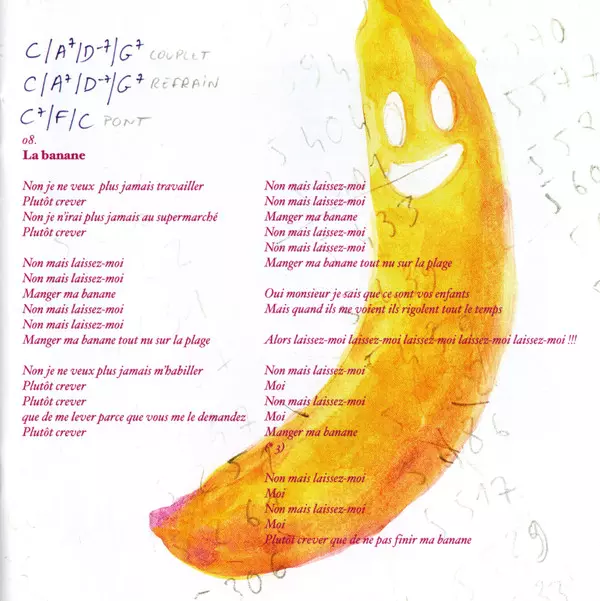 C/A⁷/D-⁷/G⁷ COUPLET
C/A⁷/D-⁷/G⁷ REFRAIN
C⁷/F/C PONT
08.
La banane
Non je ne veux plus jamais travailler
Plutôt crever
Non je n'irai plus jamais au supermarché
Plutôt crever
Non mais laissez-moi
Non mais laissez-moi
Manger ma banane
Non mais laissez-moi
Non mais laissez-moi
Manger ma banane tout nu sur la plage
Non je ne veux plus jamais m'habiller
Plutôt crever
Plutôt crever
que de me lever parce que vous me le demandez
Plutôt crever
Non mais laissez-moi
Non mais laissez-moi
Manger ma banane
Non mais laissez-moi
Non mais laissez-moi
Manger ma banane tout nu sur la plage
Oui monsieur je sais que ce sont vos enfants
Mais quand ils me voient ils rigolent tout le temps
Alors laissez-moi laissez-moi laissez-moi laissez-moi laissez-moi !!!
Non mais laissez-moi
Moi
Non mais laissez-moi
Moi
Manger ma banane
3)
Non mais laissez-moi
Moi
Non mais laissez-moi
Moi
Plutôt crever que de ne pas finir ma banane